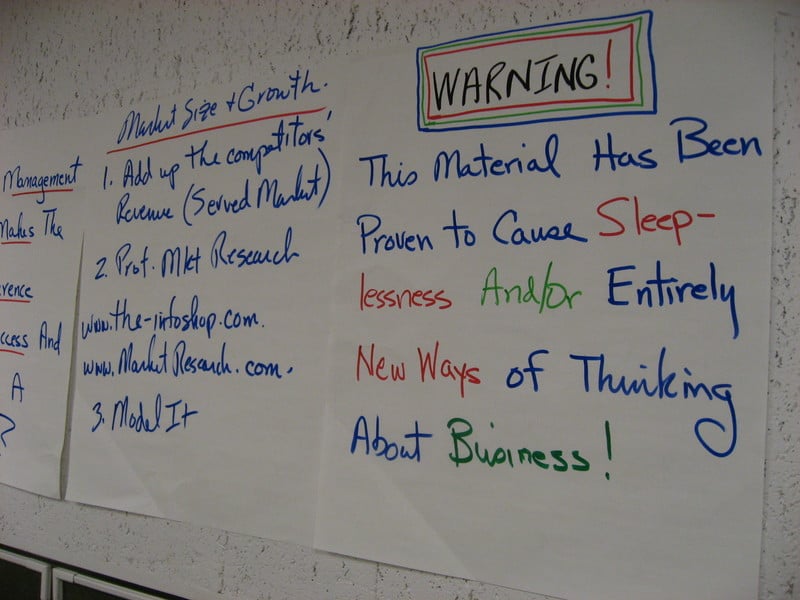 Management
Makes The
erence
ccess And
A
?
Market Size & Growth.
1. Add up the competitors'
Revenue (Served Market)
2. Prof. Mkt Research
www.the-infoshop.com.
www.MarketResearch.com.
3. Model It
WARNING!
This Material Has Been
Proven to Cause Sleep-
lessness And/or Entirely
New Ways of Thinking
About Business!